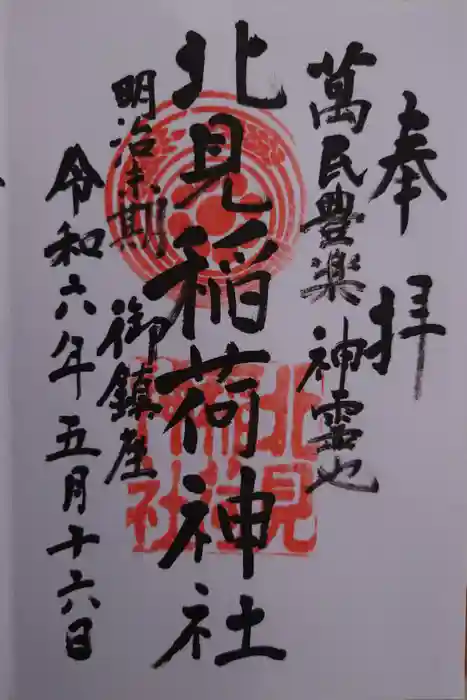 奉拝
萬民豊楽 神霊也
北見稲荷神社
明治末期 御鎮座
令和六年五月十六日
北見稲荷神社